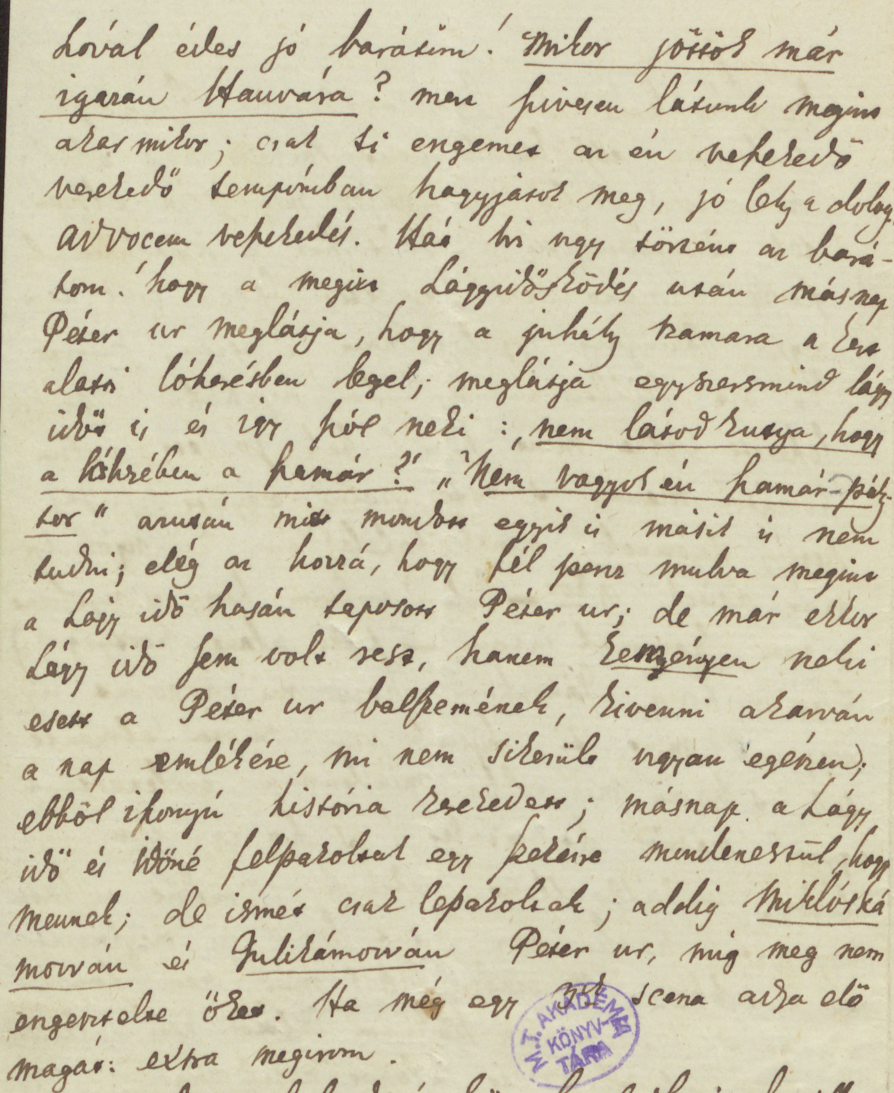 lóval édes jó barátim! Mikor jöttök már
igazán Hanvára? mert szivesen látunk megint
akármikor; csak ti engemet az én vesződő
verekedő tempómban hagyjatok meg, jó lesz a dolog.
Advocem vesződés. Hát hi ugy történt az bará-
tom! hogy a megint Lágyidősködés után másnap
Péter ur meglátja, hogy a juhász szamara a kert
alatti lóherésben legel; meglátja egyszersmind lágy
időt is és igy szól neki: „nem látod kutya, hogy
a lóhrében a szamár?" „Nem vagyok én szamár-pász-
tor" azután mit mondott egyik is másik is nem
tudni; elég az hozzá, hogy fél perz mulva megint
a Lágy idő hasán taposott Péter ur; de már ekkor
Lágy idő sem volt rest, hanem keményen neki
esett a Péter ur balszemének, kivenni akarván
a nap emlékére, mi nem sikerült ugyan egészen;
ebből iszonyú história kerekedett; másnap a Lágy
idő és Időné felpakoltak egy szekérre mindenestül, hogy
mennek; de ismét csak lepakoltak; addig Miklóská
morván és Julikámorván Péter ur, mig meg nem
engesztelte őket. Ha még egy scena adja elő
magát: extra megirom.
M.T. AKADÉMIA
KÖNYV-
TÁRA